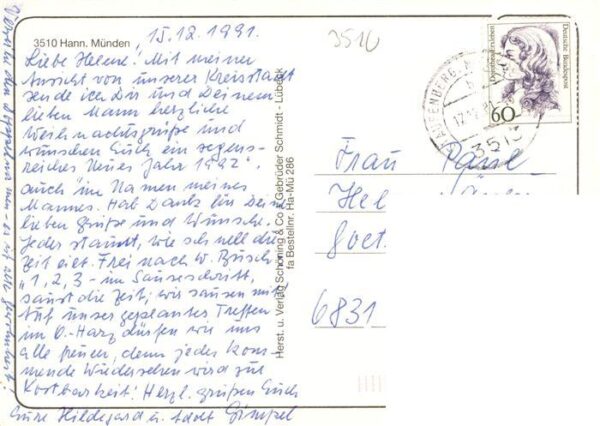 15.12.1991.
3510 Hann. Münden
3510
Liebe Helene! Mit meiner
Ansicht von unserer Kreisstadt
sende ich Dir und Deinem
lieben Mann herzliche
Weihnachtsgrüße und
wünschen Euch ein segens-
reiches "Neues Jahr 1992".
auch im Namen meines
Mannes. Hab Dank für Deine
lieben Grüße und Wünsche.
Jeder staunt, wie schnell die
Zeit eilt. Frei nach W. Busch:
"1, 2, 3 - im Sauseschritt,
saust die Zeit, wir sausen mit
Auf unser geplantes Treffen
im O.-Harz dürfen wir uns
alle freuen, denn jedes kom-
mende Wiedersehen wird zur
Kostbarkeit! Herzl. grüßen Euch
Eure Hildegard u. Adolf Gimpel
Herst. u. Verlag Schöning & Co + Gebrüder Schmidt - Lübeck
fa Bestellnr. Ha-Mü 286
Deutsche Bundespost
60
3513
Frau
Hel
Goet
6831